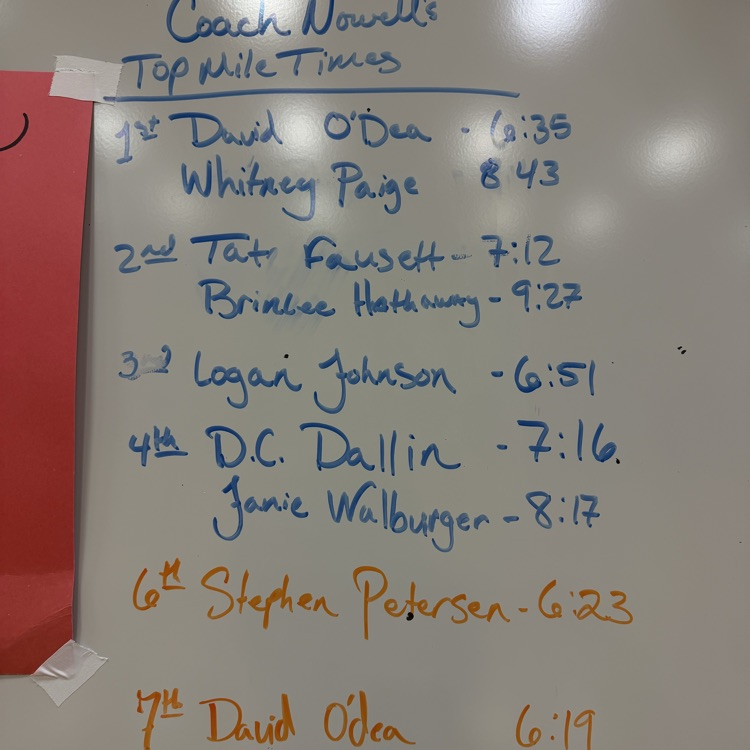 Coach Nowell's
Top Mile Times
1st David O'Dea - 6:35
Whitney Paige 8 43
2nd Tate Fausett - 7:12
Brinlee Hathaway - 9:27
3rd Logan Johnson - 6:51
4th D.C. Dallin - 7:16
Janie Walburger - 8:17
6th Stephen Petersen - 6:23
7th David O'dea 6:19